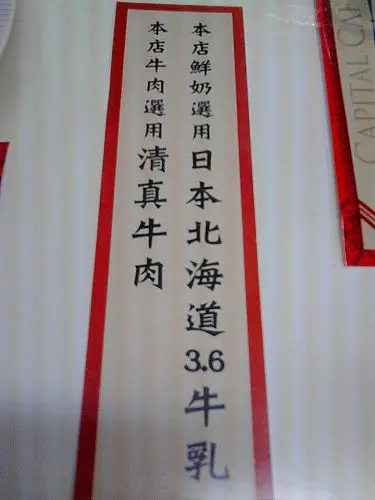 本店鮮奶選用日本北海道3.6牛乳
本店牛肉選用清真牛肉
CAPITAL CAF